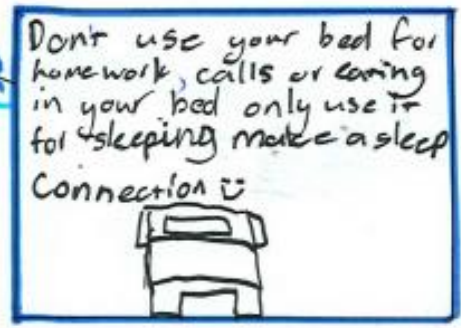 Don't use your bed for
homework, calls or eating
in your bed only use it
for sleeping make a sleep
Connection ü